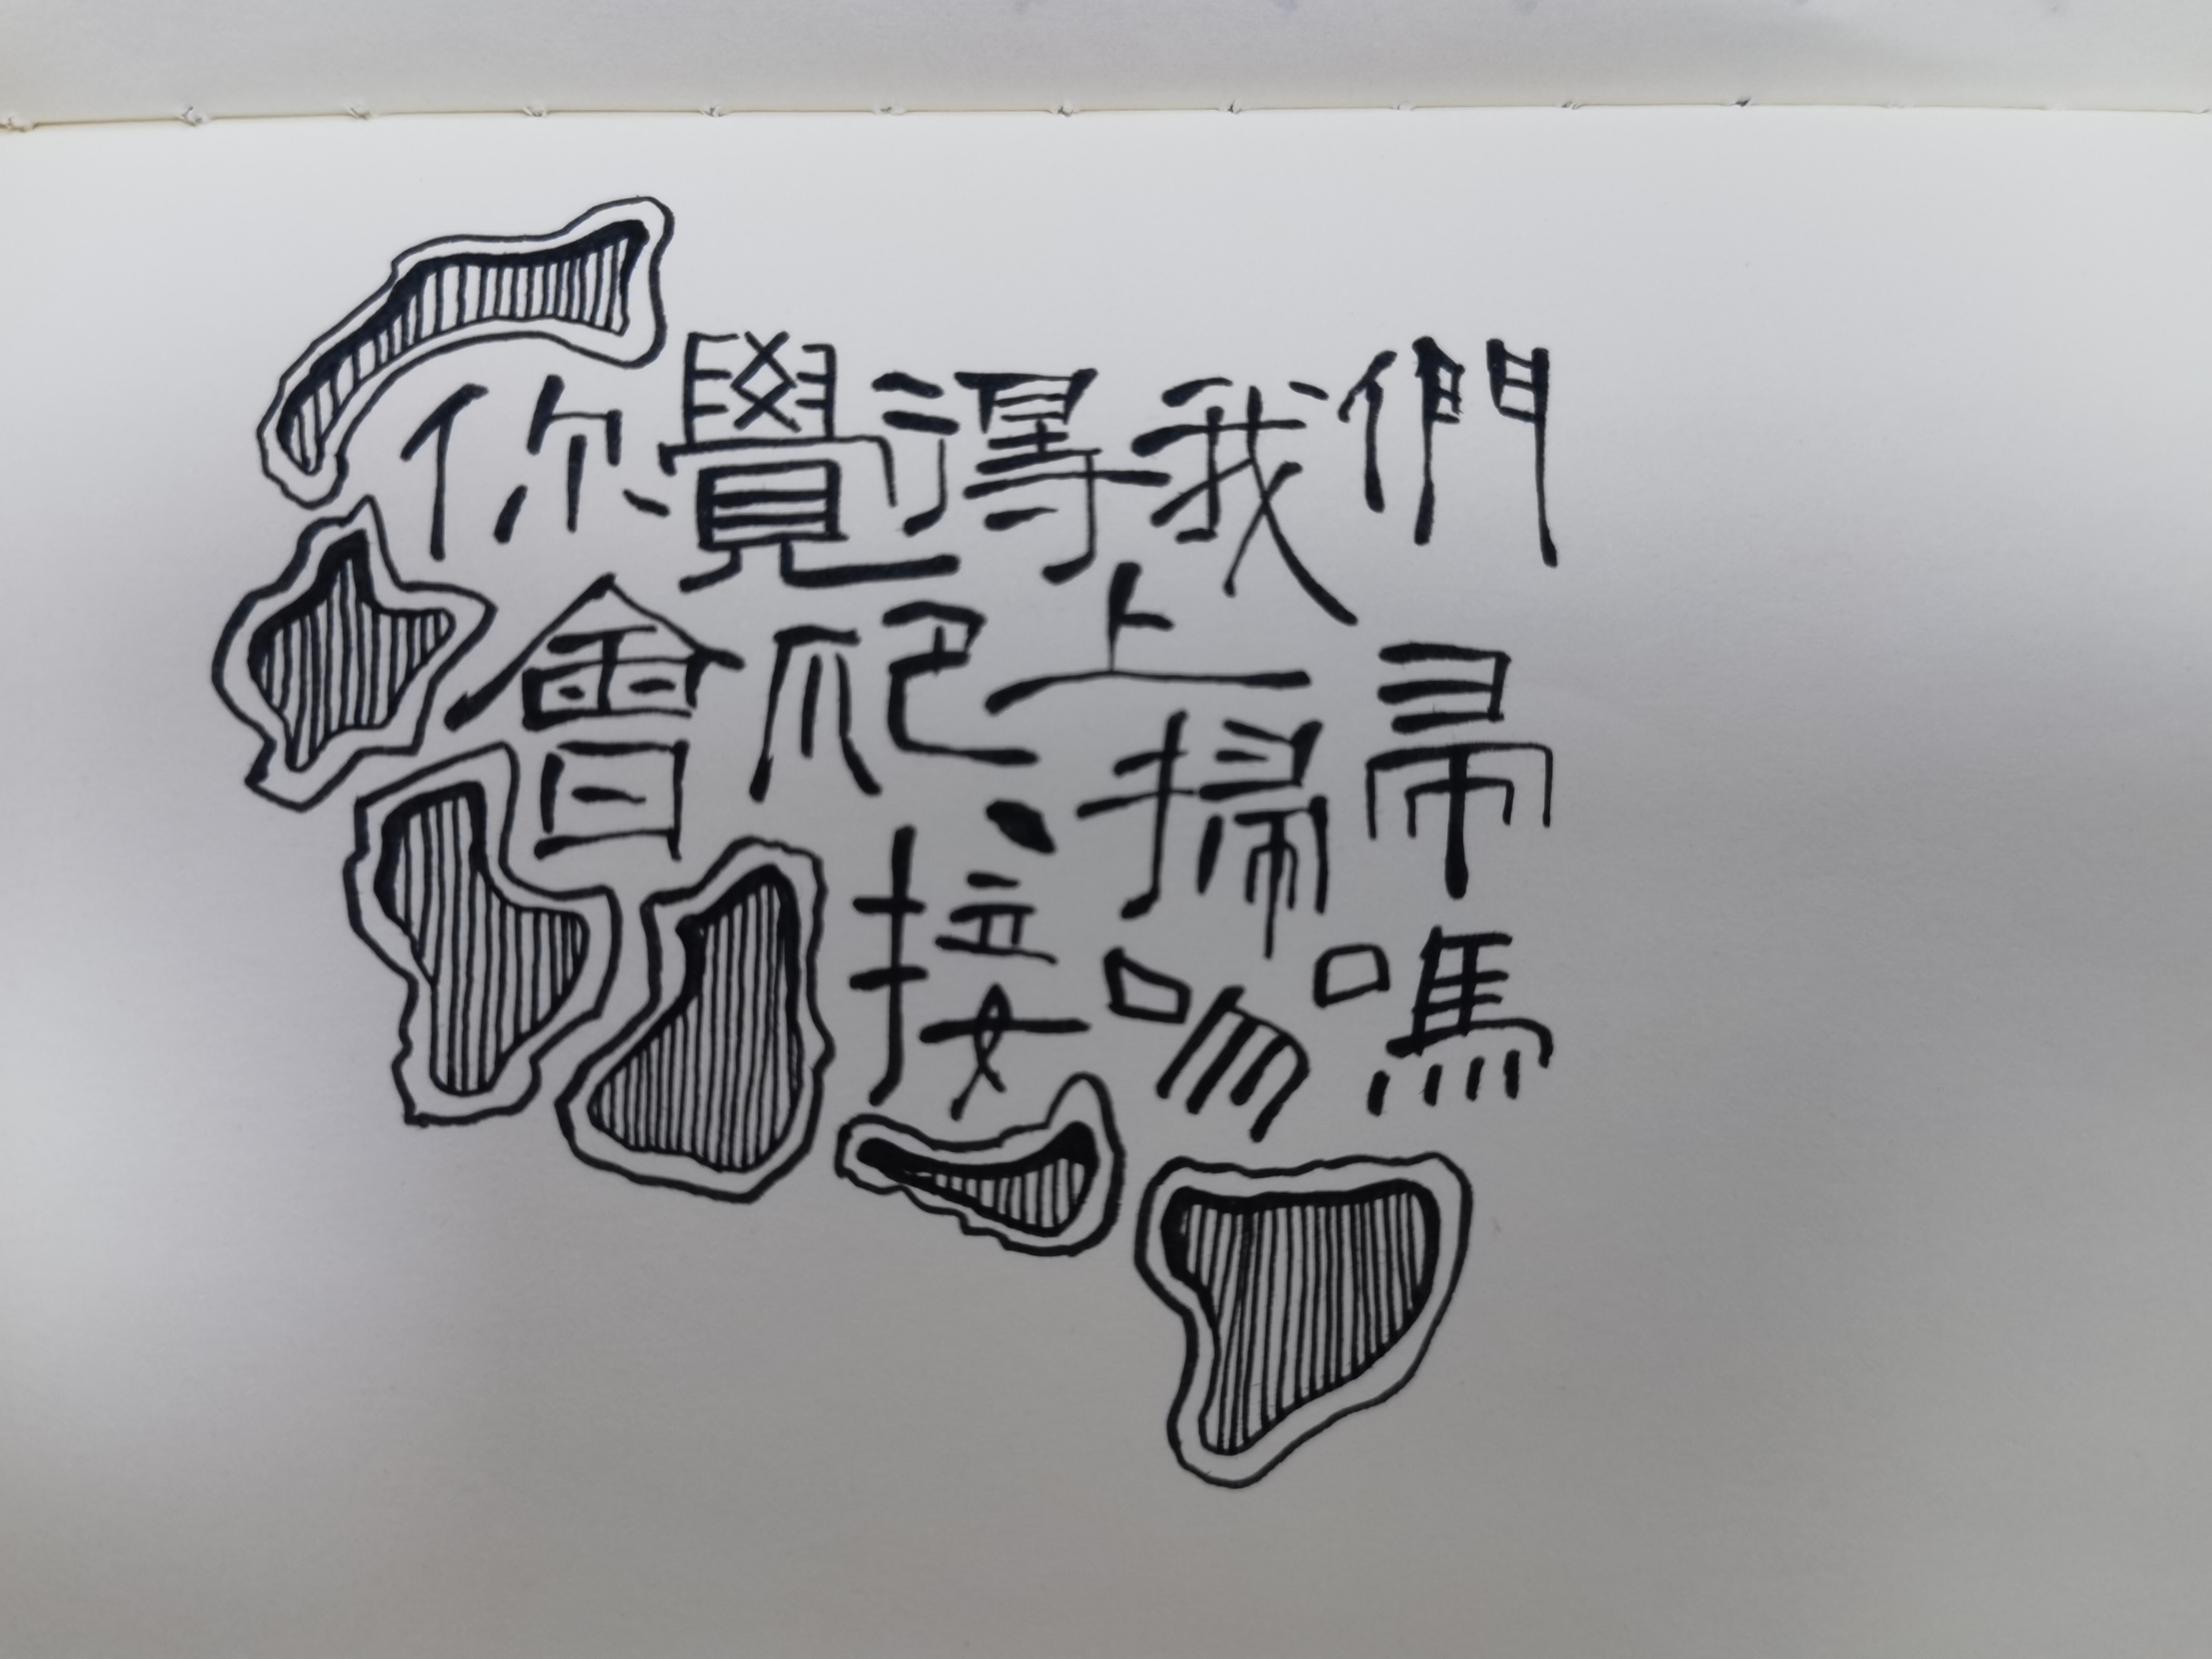 你覺得我們
會爬上掃帚
、接吻嗎